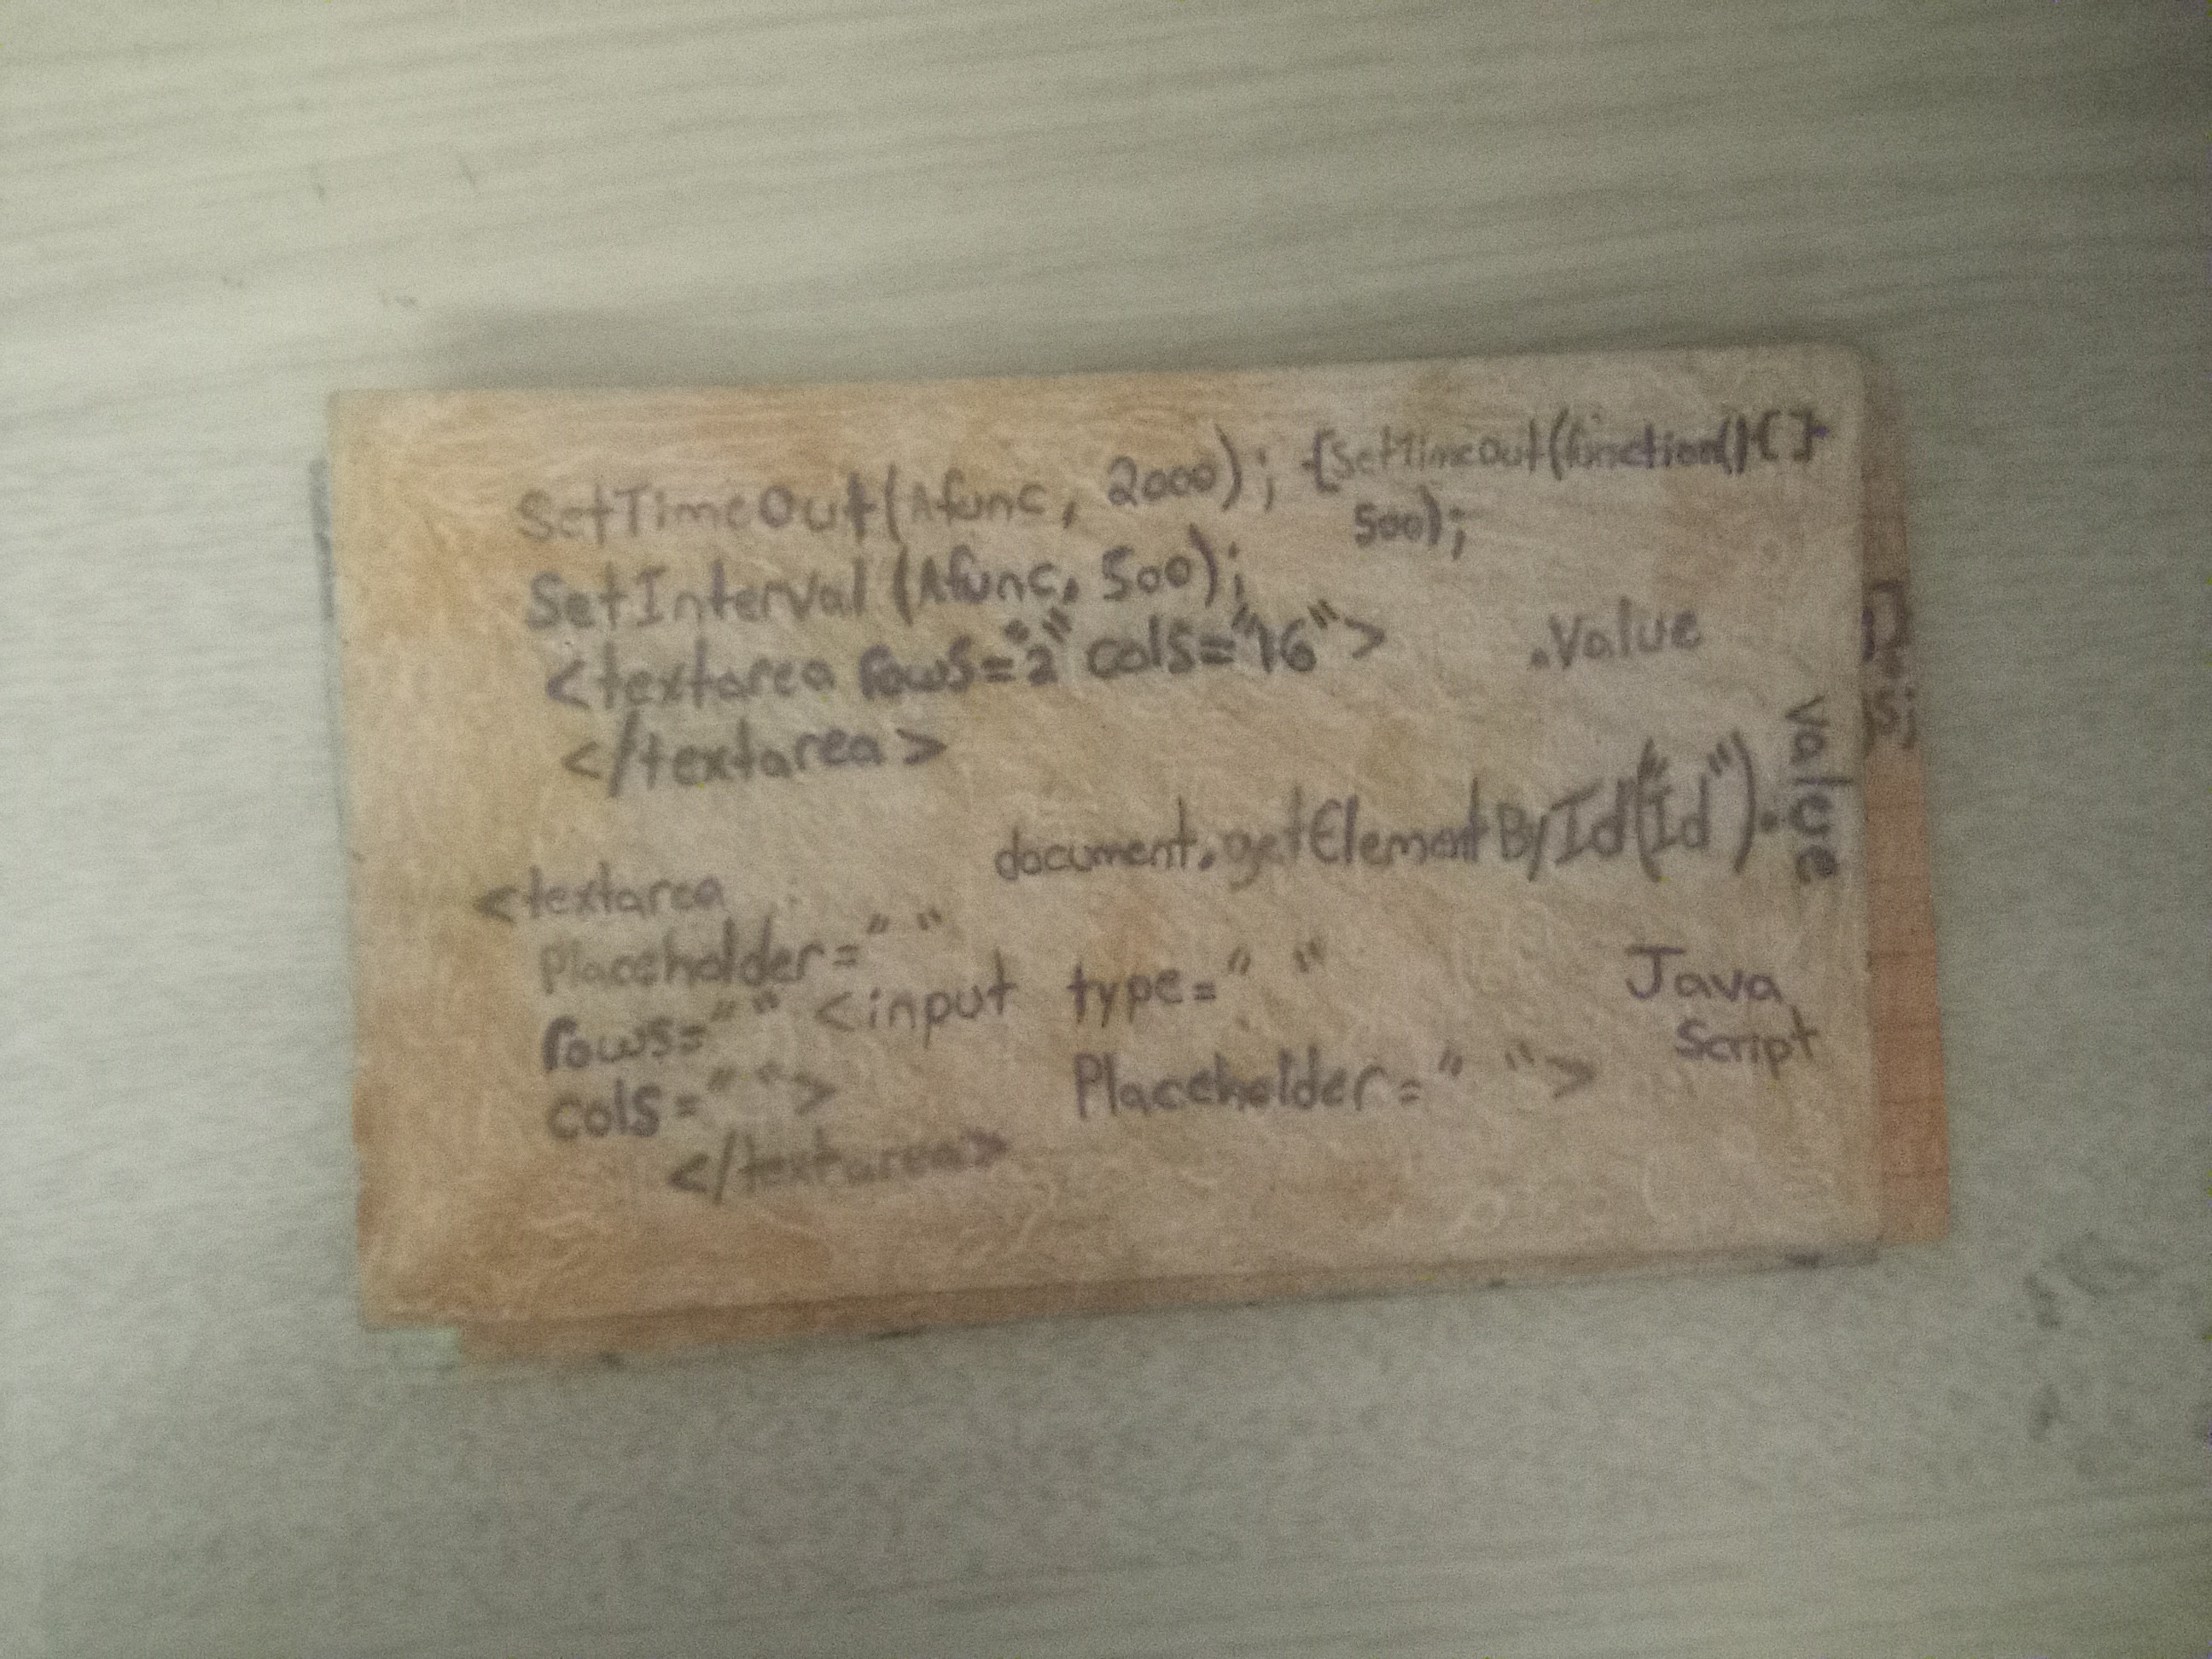 SetTimeOut(Afunc, 2000); {SetTimeout(function(){}
500);
SetInterval (Afunc, 500);
<textarea rows="2" cols="16">
.Value
</textarea>
document.getElementById("Id").value
<textarea
Placeholder=" "
rows=" "
cols=" ">
</textarea>
<input type=" "
Placeholder=" ">
Java
Script